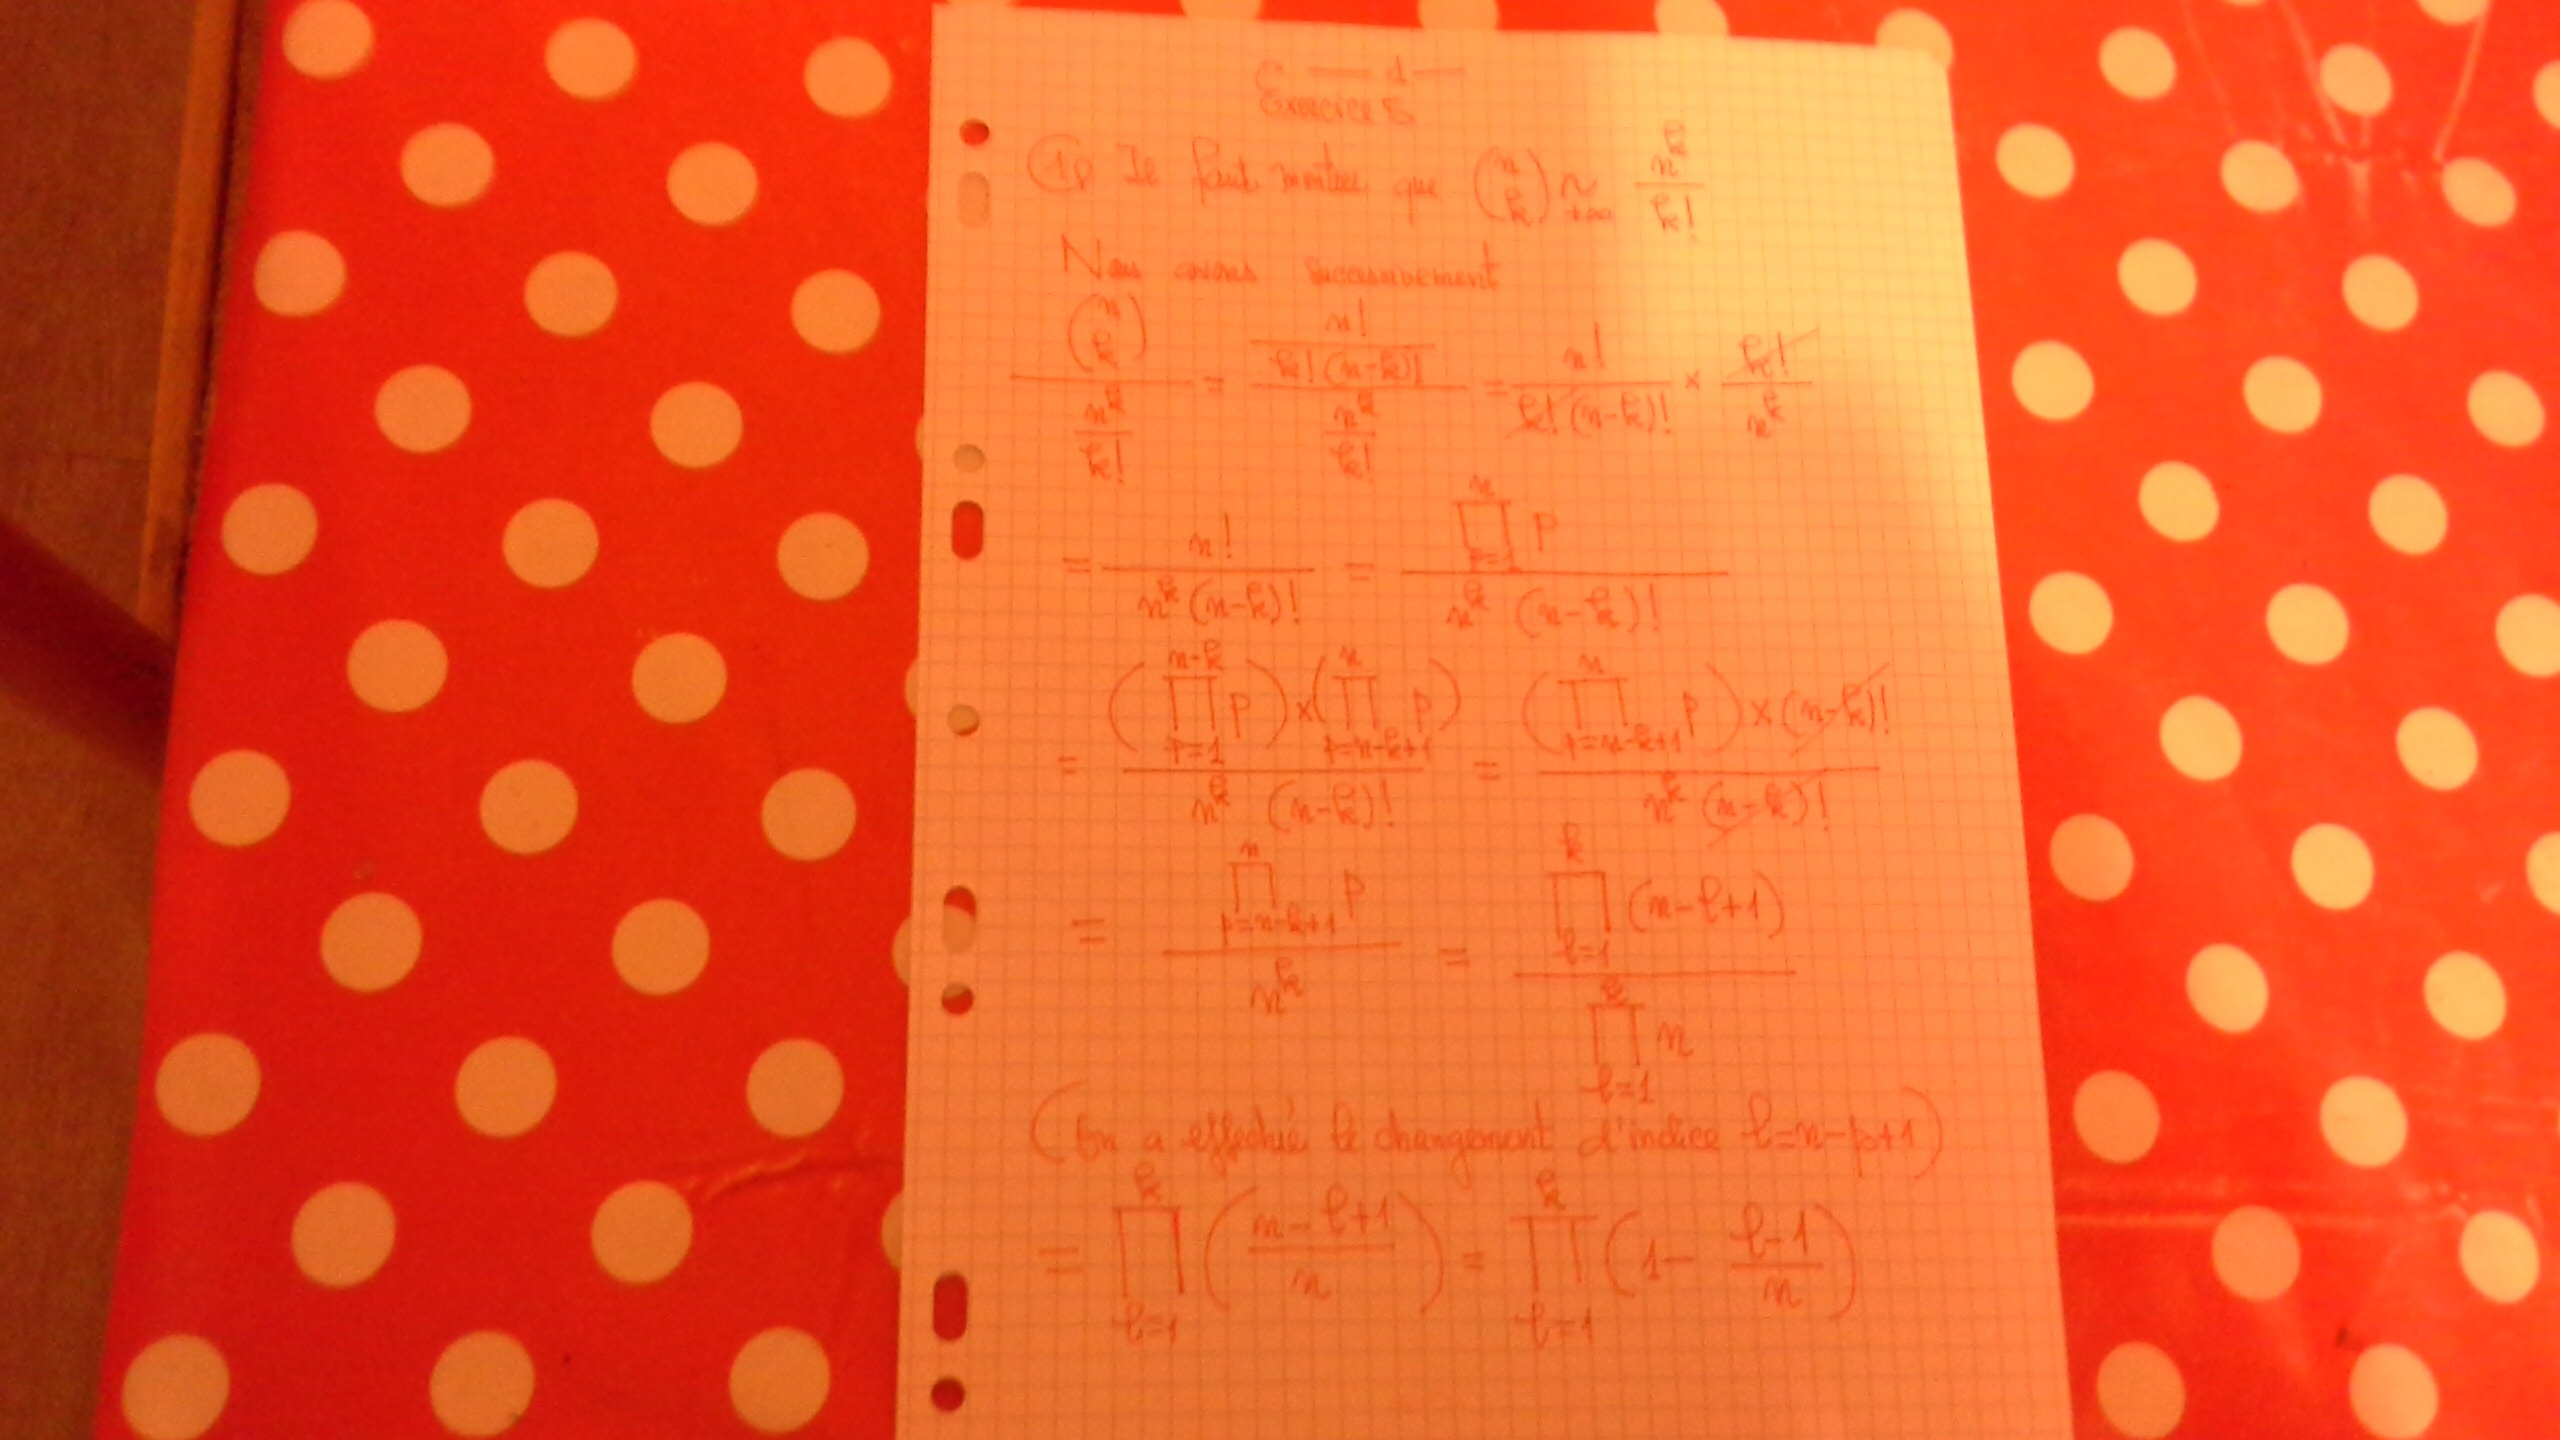 — 1 —
Exercice 5
1) Il faut montrer que (n k) ~ +∞ n^k / k!
Nous avons successivement
(n k) / (n^k / k!) = (n! / (k! (n-k)!)) / (n^k / k!) = n! / (k! (n-k)!) × k! / n^k
= n! / (n^k (n-k)!) = (∏_{p=1}^{n} p) / (n^k (n-k)!)
= ((∏_{p=1}^{n-k} p) × (∏_{p=n-k+1}^{n} p)) / (n^k (n-k)!) = ((∏_{p=n-k+1}^{n} p) × (n-k)!) / (n^k (n-k)!)
= (∏_{p=n-k+1}^{n} p) / n^k = (∏_{l=1}^{k} (n-l+1)) / (∏_{l=1}^{k} n)
(On a effectué le changement d'indice l=n-p+1)
= ∏_{l=1}^{k} ((n-l+1) / n) = ∏_{l=1}^{k} (1 - (l-1) / n)